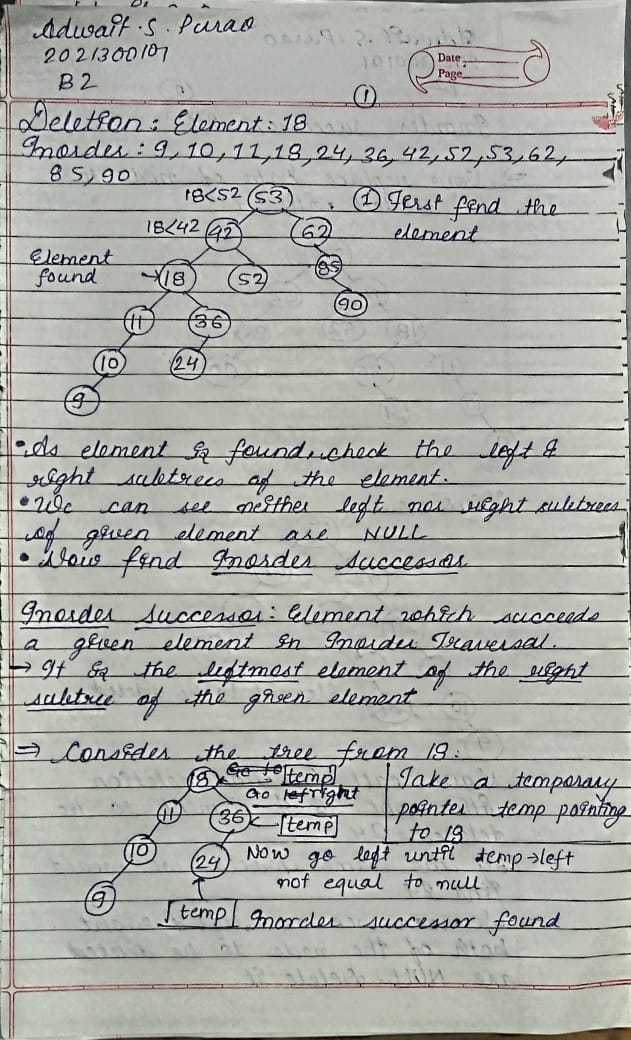 Adwait . S. Purao
2021300101
B2
Date
Page
①
Deletion : Element : 18
Inorder : 9, 10, 11, 18, 24, 36, 42, 52, 53, 62,
85, 90
18<52 53 ① First find the
18<42 42 62 element
Element
found → 18 52 85
90
11 36
10 24
9
• As element is found, check the left &
right subtrees of the element.
• We can see neither left nor right subtrees
of given element are NULL
• Now find Inorder Successor
Inorder Successor : Element which succeeds
a given element in Inorder Traversal.
→ It is the leftmost element of the right
subtree of the given element
⇒ Consider the tree from 18 :
18 ← Go to temp
Go left right
Take a temporary
pointer temp pointing
to 18
11 36 ← temp
10 24 Now go left until temp → left
not equal to null
9
temp Inorder successor found